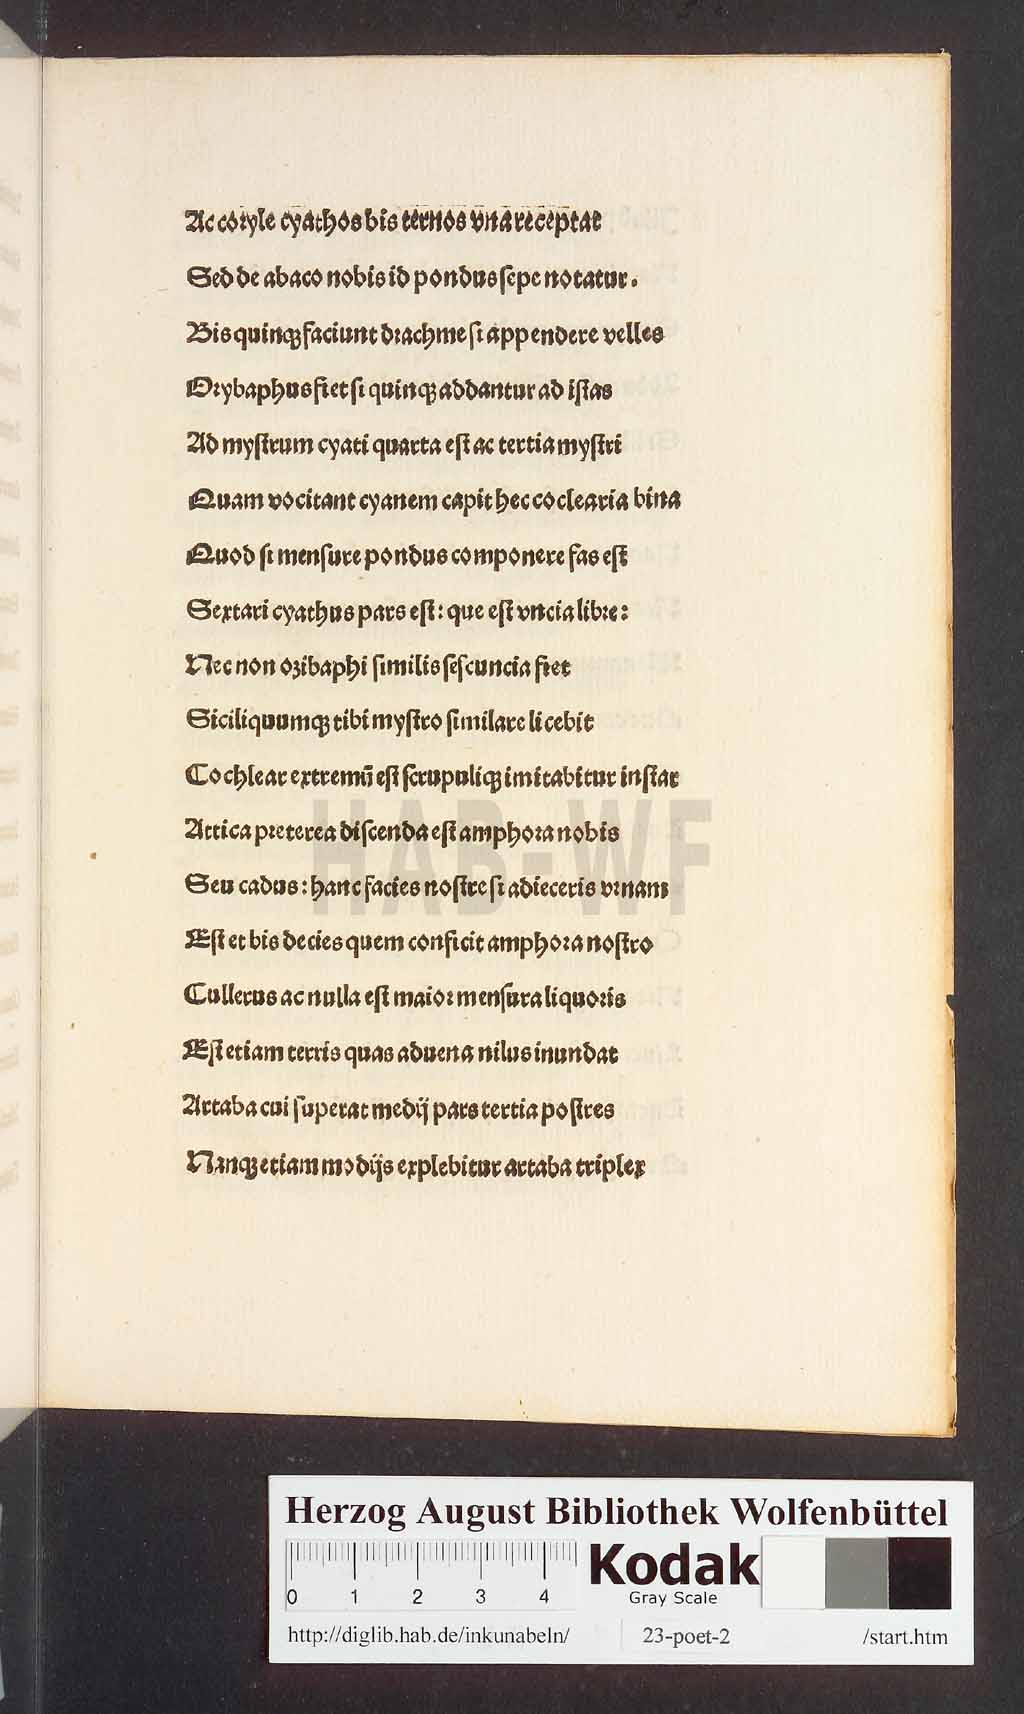 Ac cotyle cyathos bis ternos vna receptat
Sed de abaco nobis id pondus sepe notatur.
Bis quinqꝫ faciunt drachme si appendere velles
Oxybaphus fiet si quinqꝫ addantur ad istas
Ad mystrum cyati quarta est ac tertia mystri
Quam vocitant cyanem capit hec coclearia bina
Quod si mensure pondus componere fas est
Sextari cyathus pars est: que est vncia libre:
Nec non ozibaphi similis sescuncia fiet
Siciliquumqꝫ tibi mystro similare licebit
Cochlear extremū est scrupuliqꝫ imitabitur instar
Attica preterea discenda est amphora nobis
Seu cadus: hanc facies nostre si adieceris vrnam
Est et bis decies quem conficit amphora nostro
Cullerus ac nulla est maior mensura liquoris
Est etiam terris quas aduena nilus inundat
Artaba cui superat medij pars tertia postres
Nanqꝫ etiam modijs explebitur artaba triplex
HAB-WF
Herzog August Bibliothek Wolfenbüttel
0 1 2 3 4
Kodak
Gray Scale
http://diglib.hab.de/inkunabeln/ 23-poet-2 /start.htm